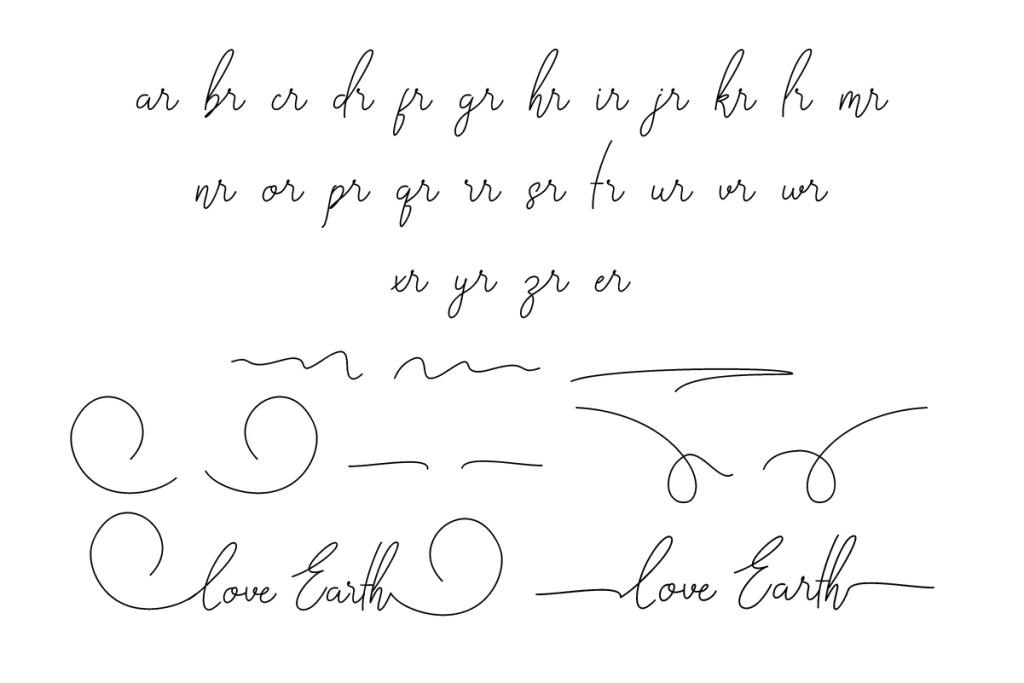 ar br cr dr fr gr hr ir jr kr lr mr
nr or pr qr rr sr tr ur vr wr
xr yr zr er
love Earth love Earth